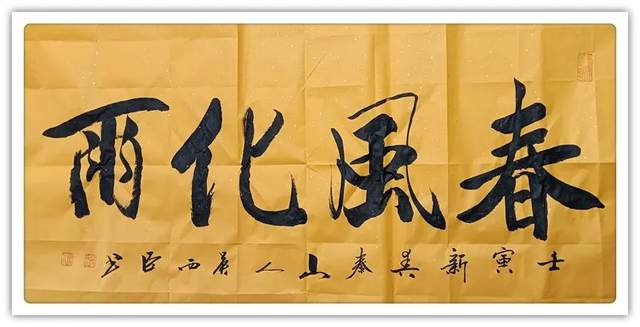 春風化雨
壬寅新春泰山人西臣书